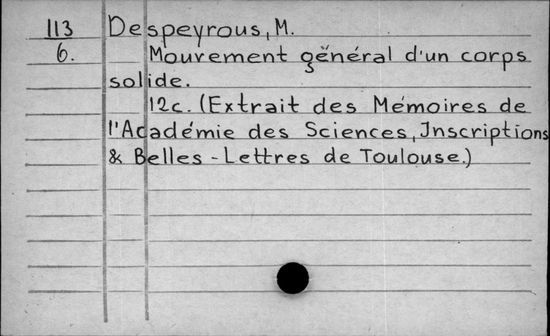 113 Despeyrous, M.
6. Mouvement général d'un corps
solide.
12c. (Extrait des Mémoires de
l'Académie des Sciences, Inscriptions
& Belles-Lettres de Toulouse.)